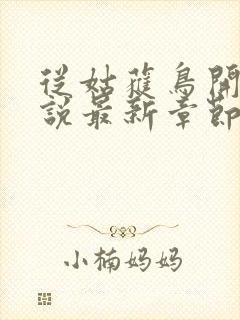 從姑蕥鳥開
說最新章節
小楠妈妈